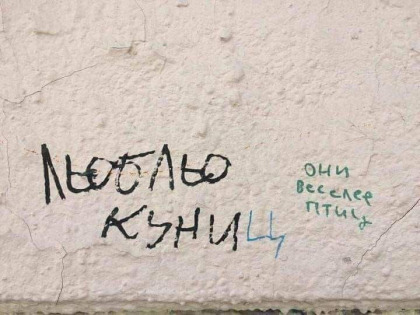 ЛЬОБЛЬО
КУНИЦ
ОНИ
ВЕСЕЛЕЕ
ПТИЦ